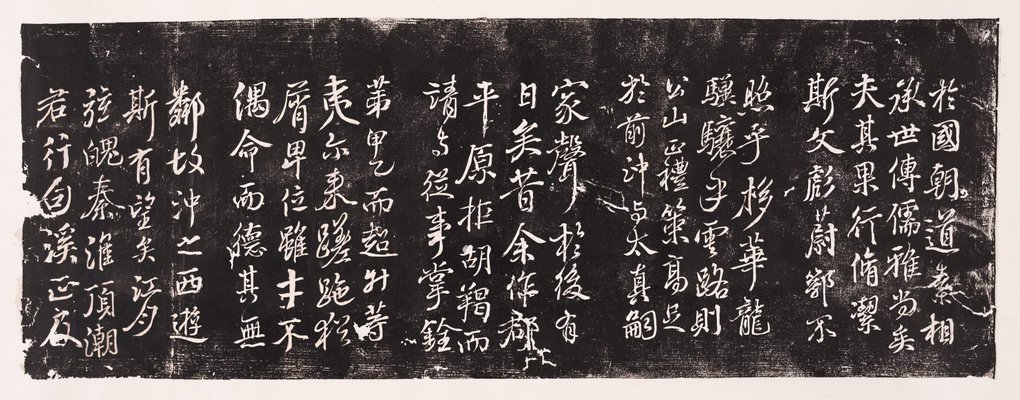 於國朝道素相
承世傳儒雅尚矣
夫其果行脩潔
斯文彪蔚鄂不
照乎栘華龍
驥驤乎雲路則
公山正禮策高足
於前沖与太真嗣
家聲於後有
日矣昔余作郡
平原拒胡羯而
請与從事掌銓
第甲乙而超升等
夷尔来蹉跎猶
屑卑位雖才不
偶命而德其無
鄰故沖之西遊
斯有望矣江月
弦魄秦淮頂潮
君行句溪正及